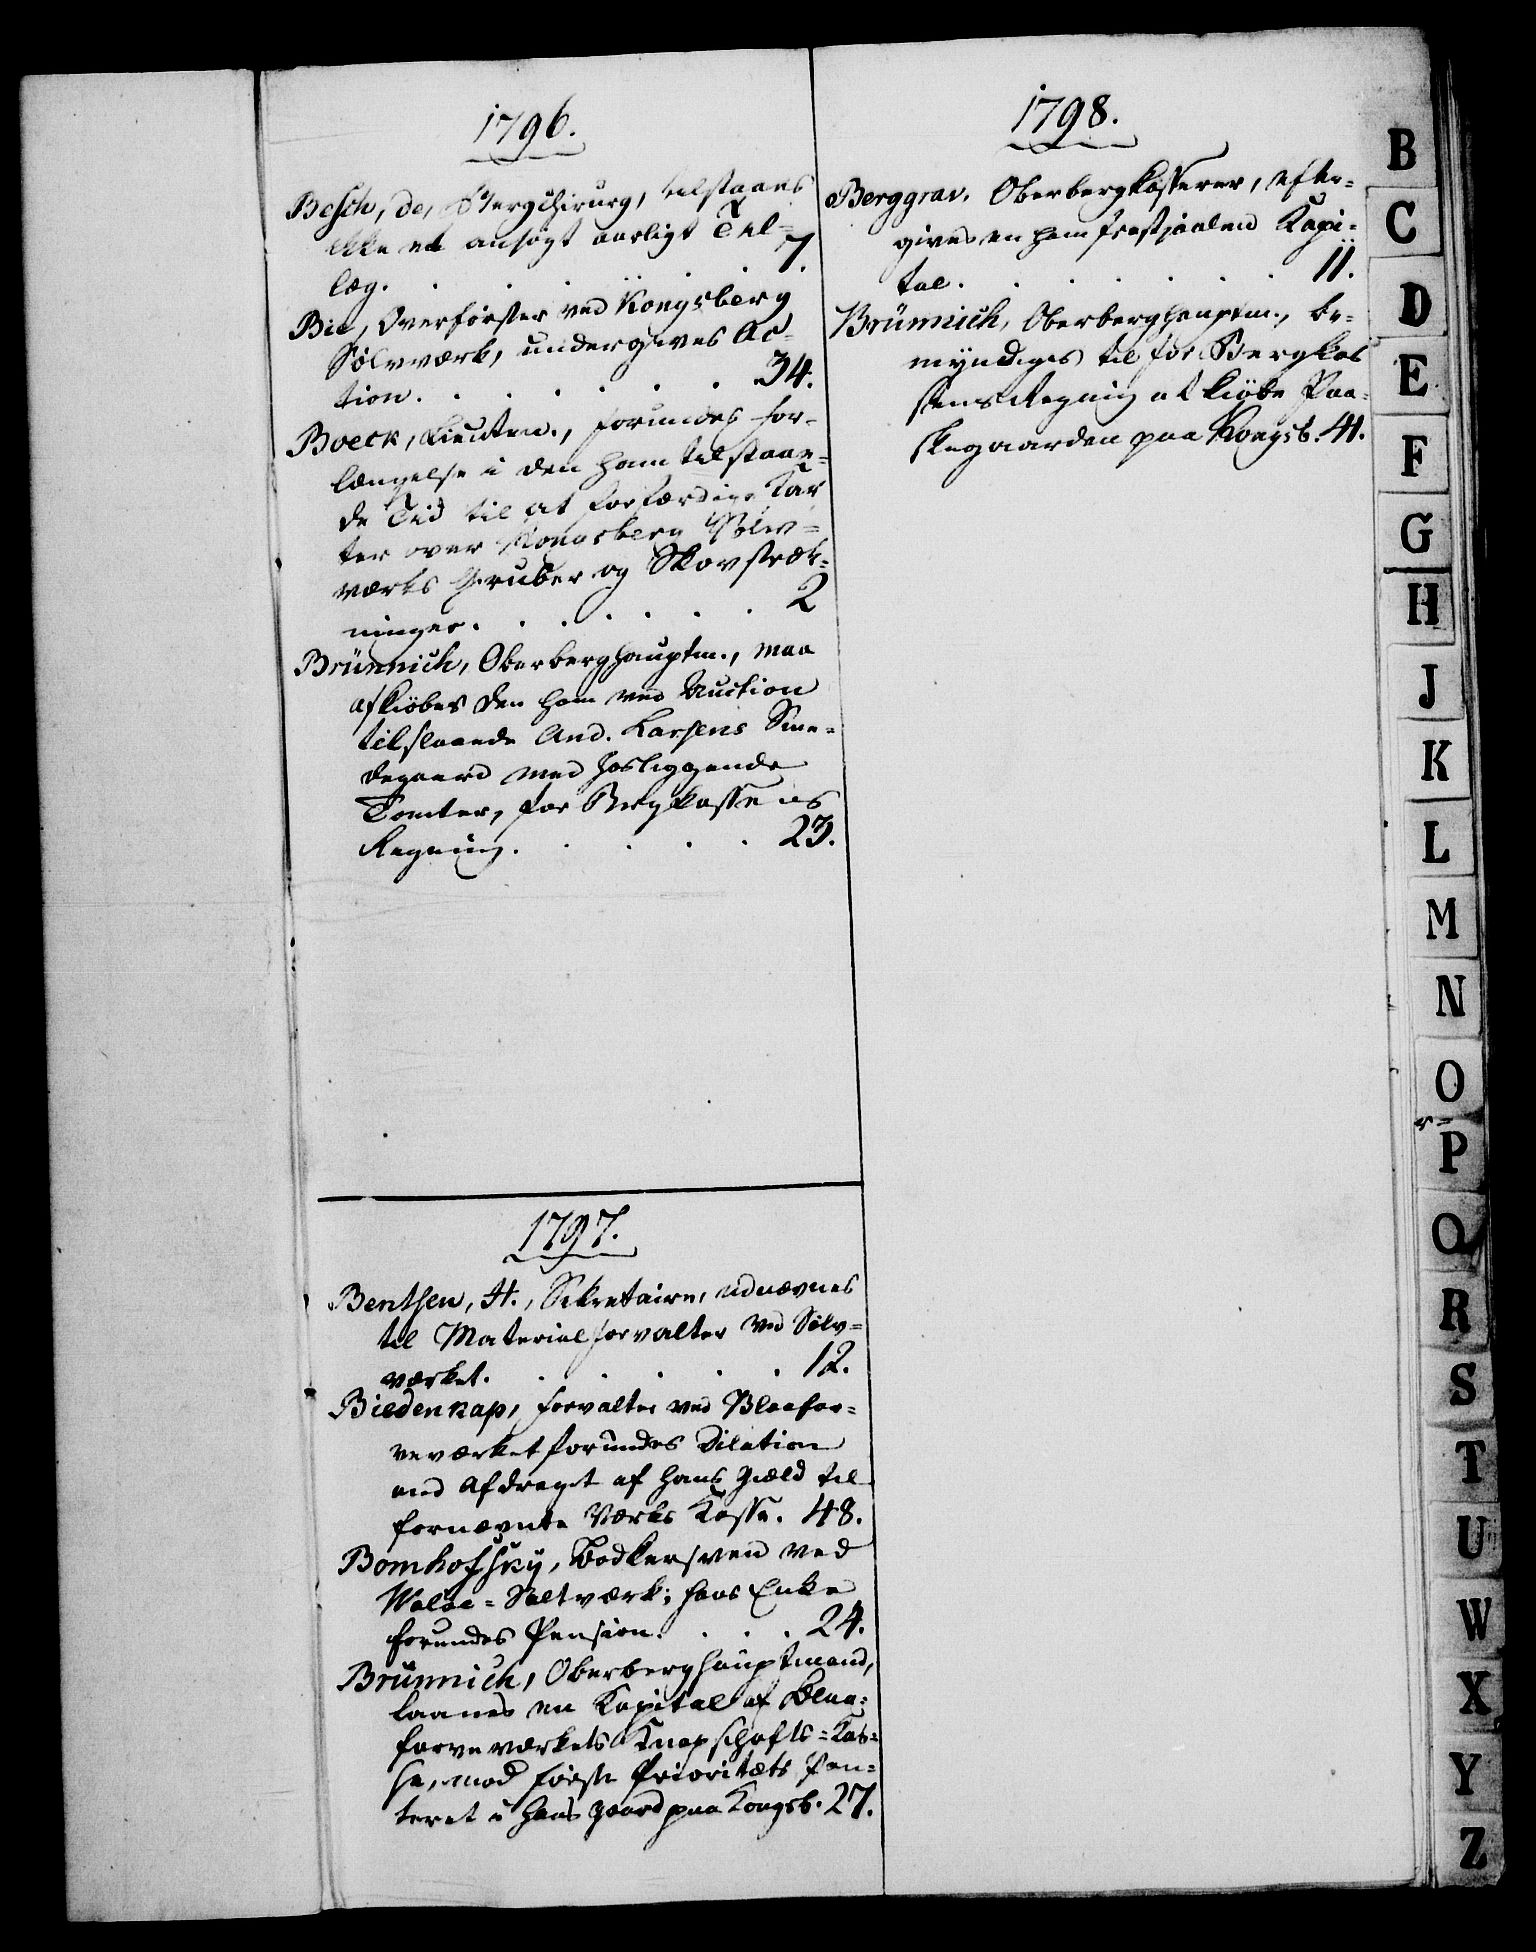 1796.
Besch, de, Bergchirurg, tilstaaes
ikke et ansøgt aarligt Til-
læg. . . . . . . 7.
Bie, Overførster ved Kongsberg
Sølvværk, undergives Ac-
tion. . . . . . . 34.
Boeck, Lieuten., forundes for-
længelse i den ham tilstaae-
de Tid til at forfærdige Kar
ter over Kongsberg Sølv-
værks Gruber og Skovstræk-
ninger. . . . . . 2
Brünnich, Oberberghauptm., maa
afkiøbes den ham ved Auction
tilslaaede And. Larsens Sme-
degaard med hosliggende
Tomter, for Bergkassens
Regning. . . . . 23.
1797.
Bentsen, H., Sekretaire, udnævnes
til Materialforvalter ved Sølv-
værket. . . . . . 12.
Biedenkap, forvalter ved Blaafar-
veværket forundes Dilation
med Afdraget af hans Gæld til
fornævnte Værks Kasse. 48.
Bomhofsky, Bødkersvend ved
Walløe-Saltværk; hans Enke
forundes Pension. . . . 24.
Brünnich, Oberberghauptmand,
laanes en Kapital af Blaa-
farveværkets Knapschafts-Kas-
se, mod første Prioritæts Pan-
teret i hans Gaard paa Kongsb. 27.
1798.
Berggrav, Oberbergkasserer, efter-
gives en ham frastjaalen Kapi-
tal. . . . . . . 11.
Brünnich, Oberberghauptm., be-
myndiges til for Bergkas
sens Regning at kiøbe Paa-
skegaarden paa Kongsb. 41.
B
C
D
E
F
G
H
J
K
L
M
N
O
P
Q
R
S
T
U
W
X
Y
Z